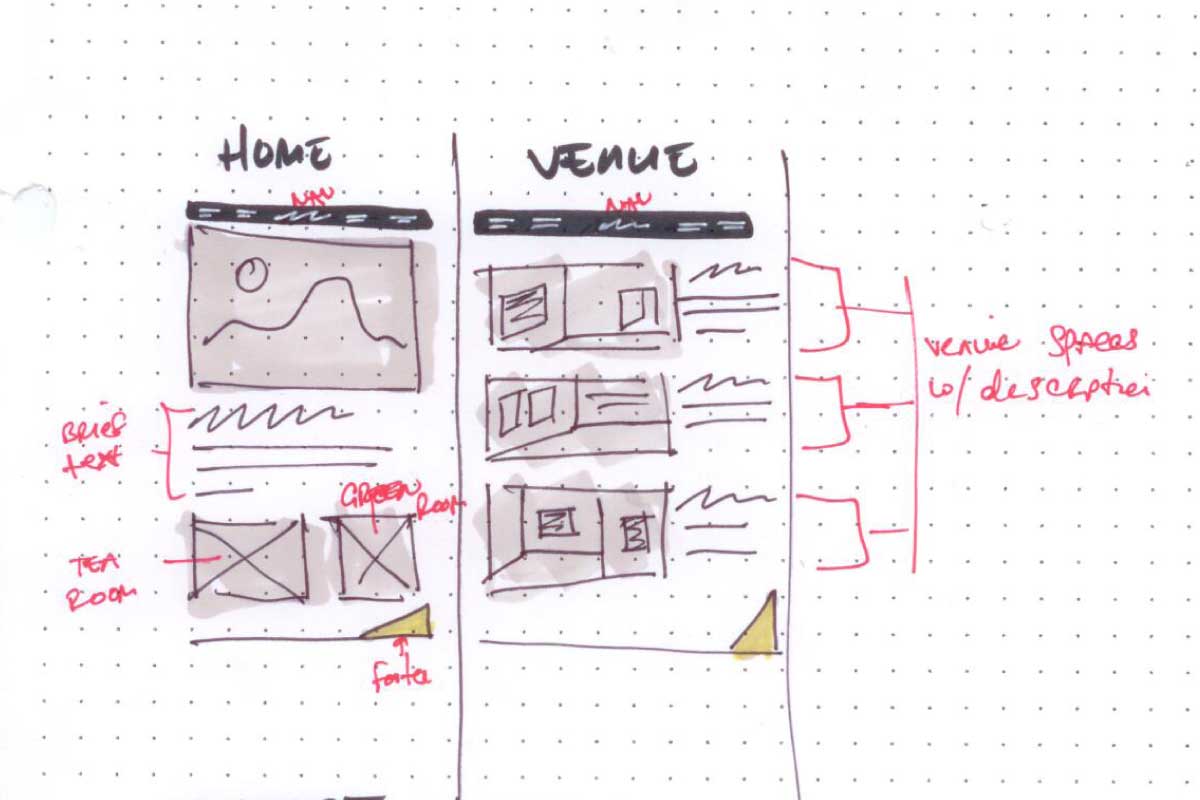 HOME
NAV
BRIEF
text
GREEN
ROOM
TEA
ROOM
footer
VENUE
NAV
venue spaces
w/ description